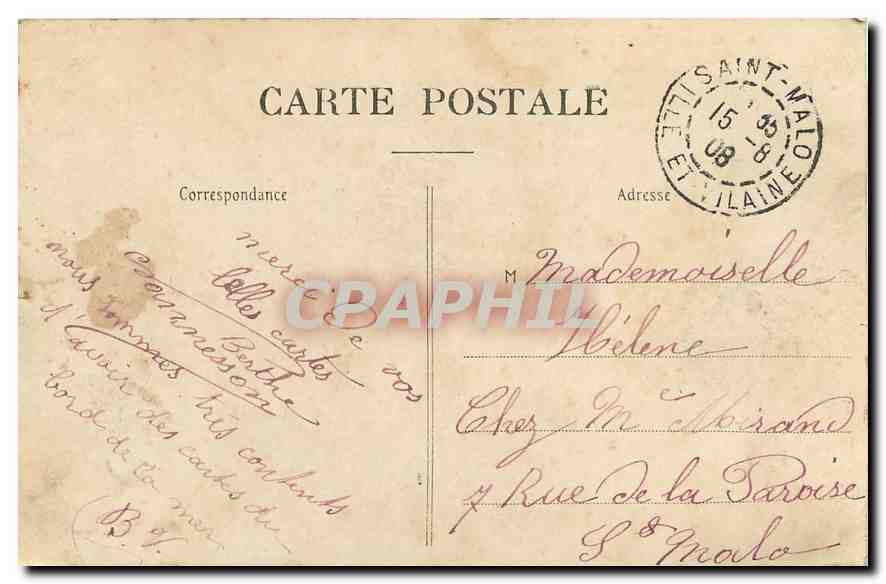 CARTE POSTALE
SAINT-MALO
15 -8
08
ILLE ET VILAINE
Correspondance
Adresse
merci de vos
belles cartes
Berthe
nous sommes très contents
d'avoir des cartes du
bord de la mer
B.
M Mademoiselle
Hélène
Chez Mr Mirand
7 Rue de la Paroise
St Malo
CPAPHIL